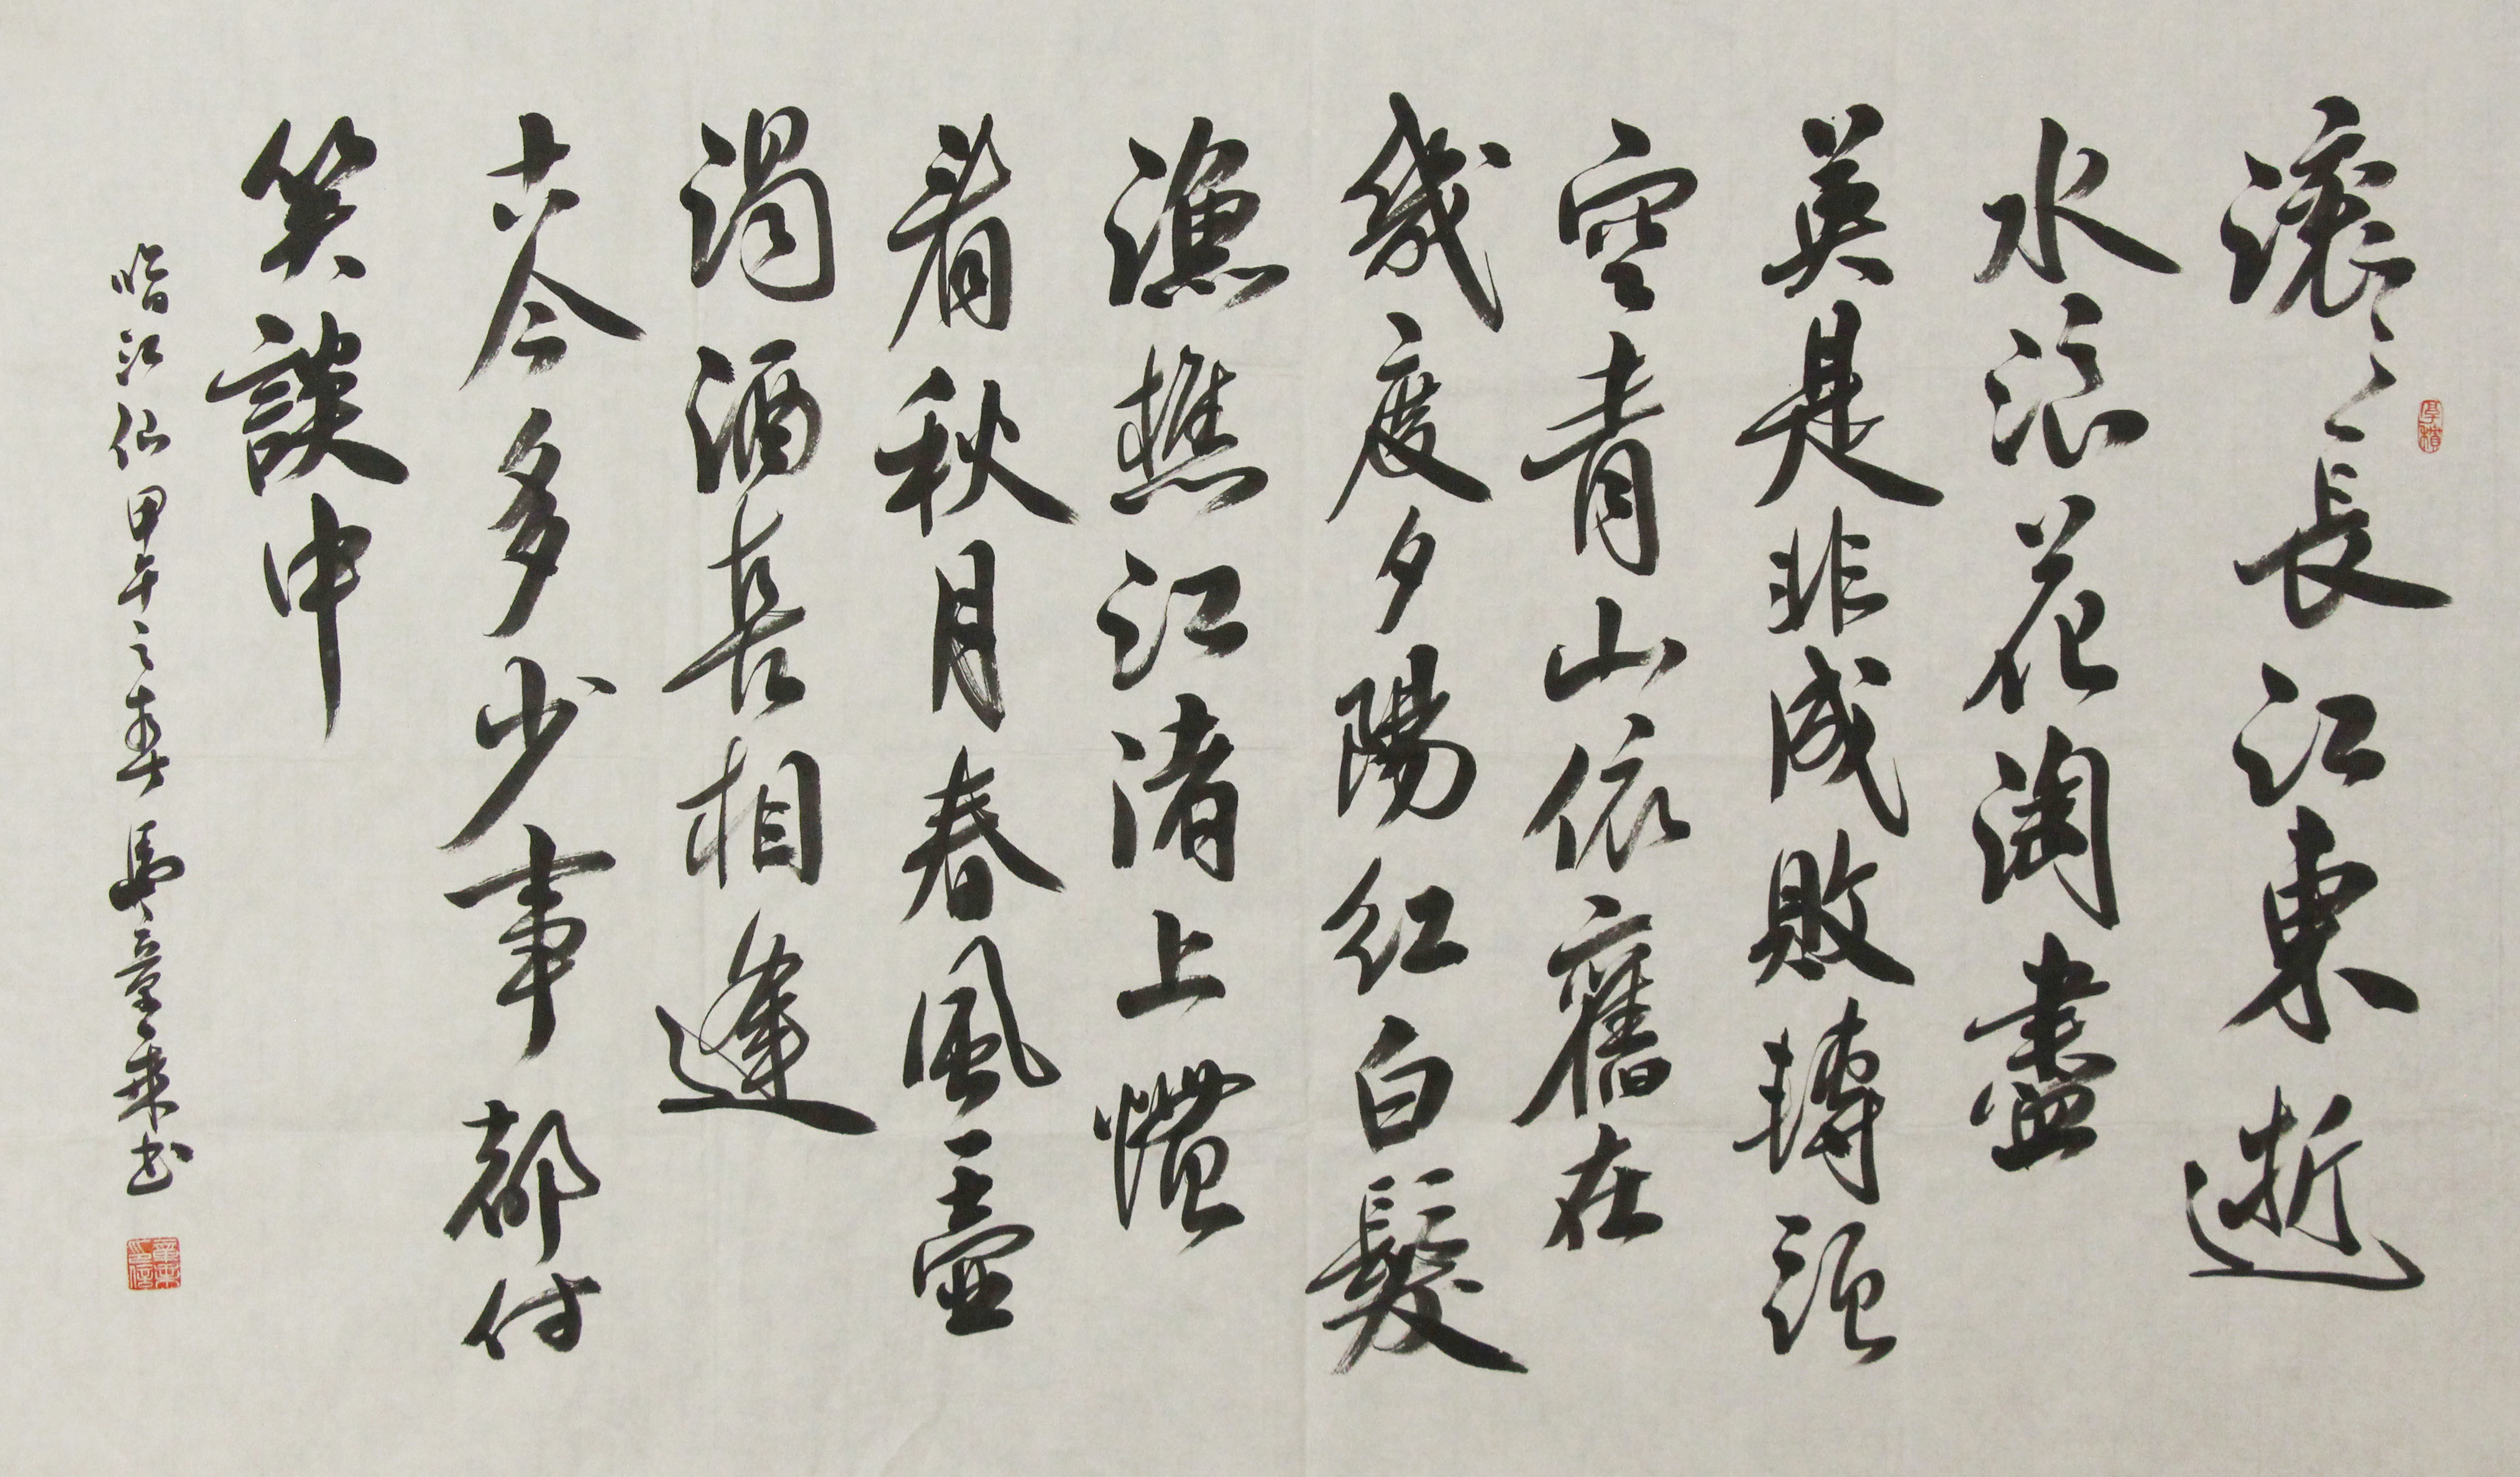 滾々長江東逝
水浪花淘盡
英是非成敗轉頭
空青山依舊在
幾度夕陽紅白髮
漁樵江渚上慣
看秋月春風一壺
濁酒喜相逢
古今多少事都付
笑談中
臨江仙 甲午之春 馬童書
厚積